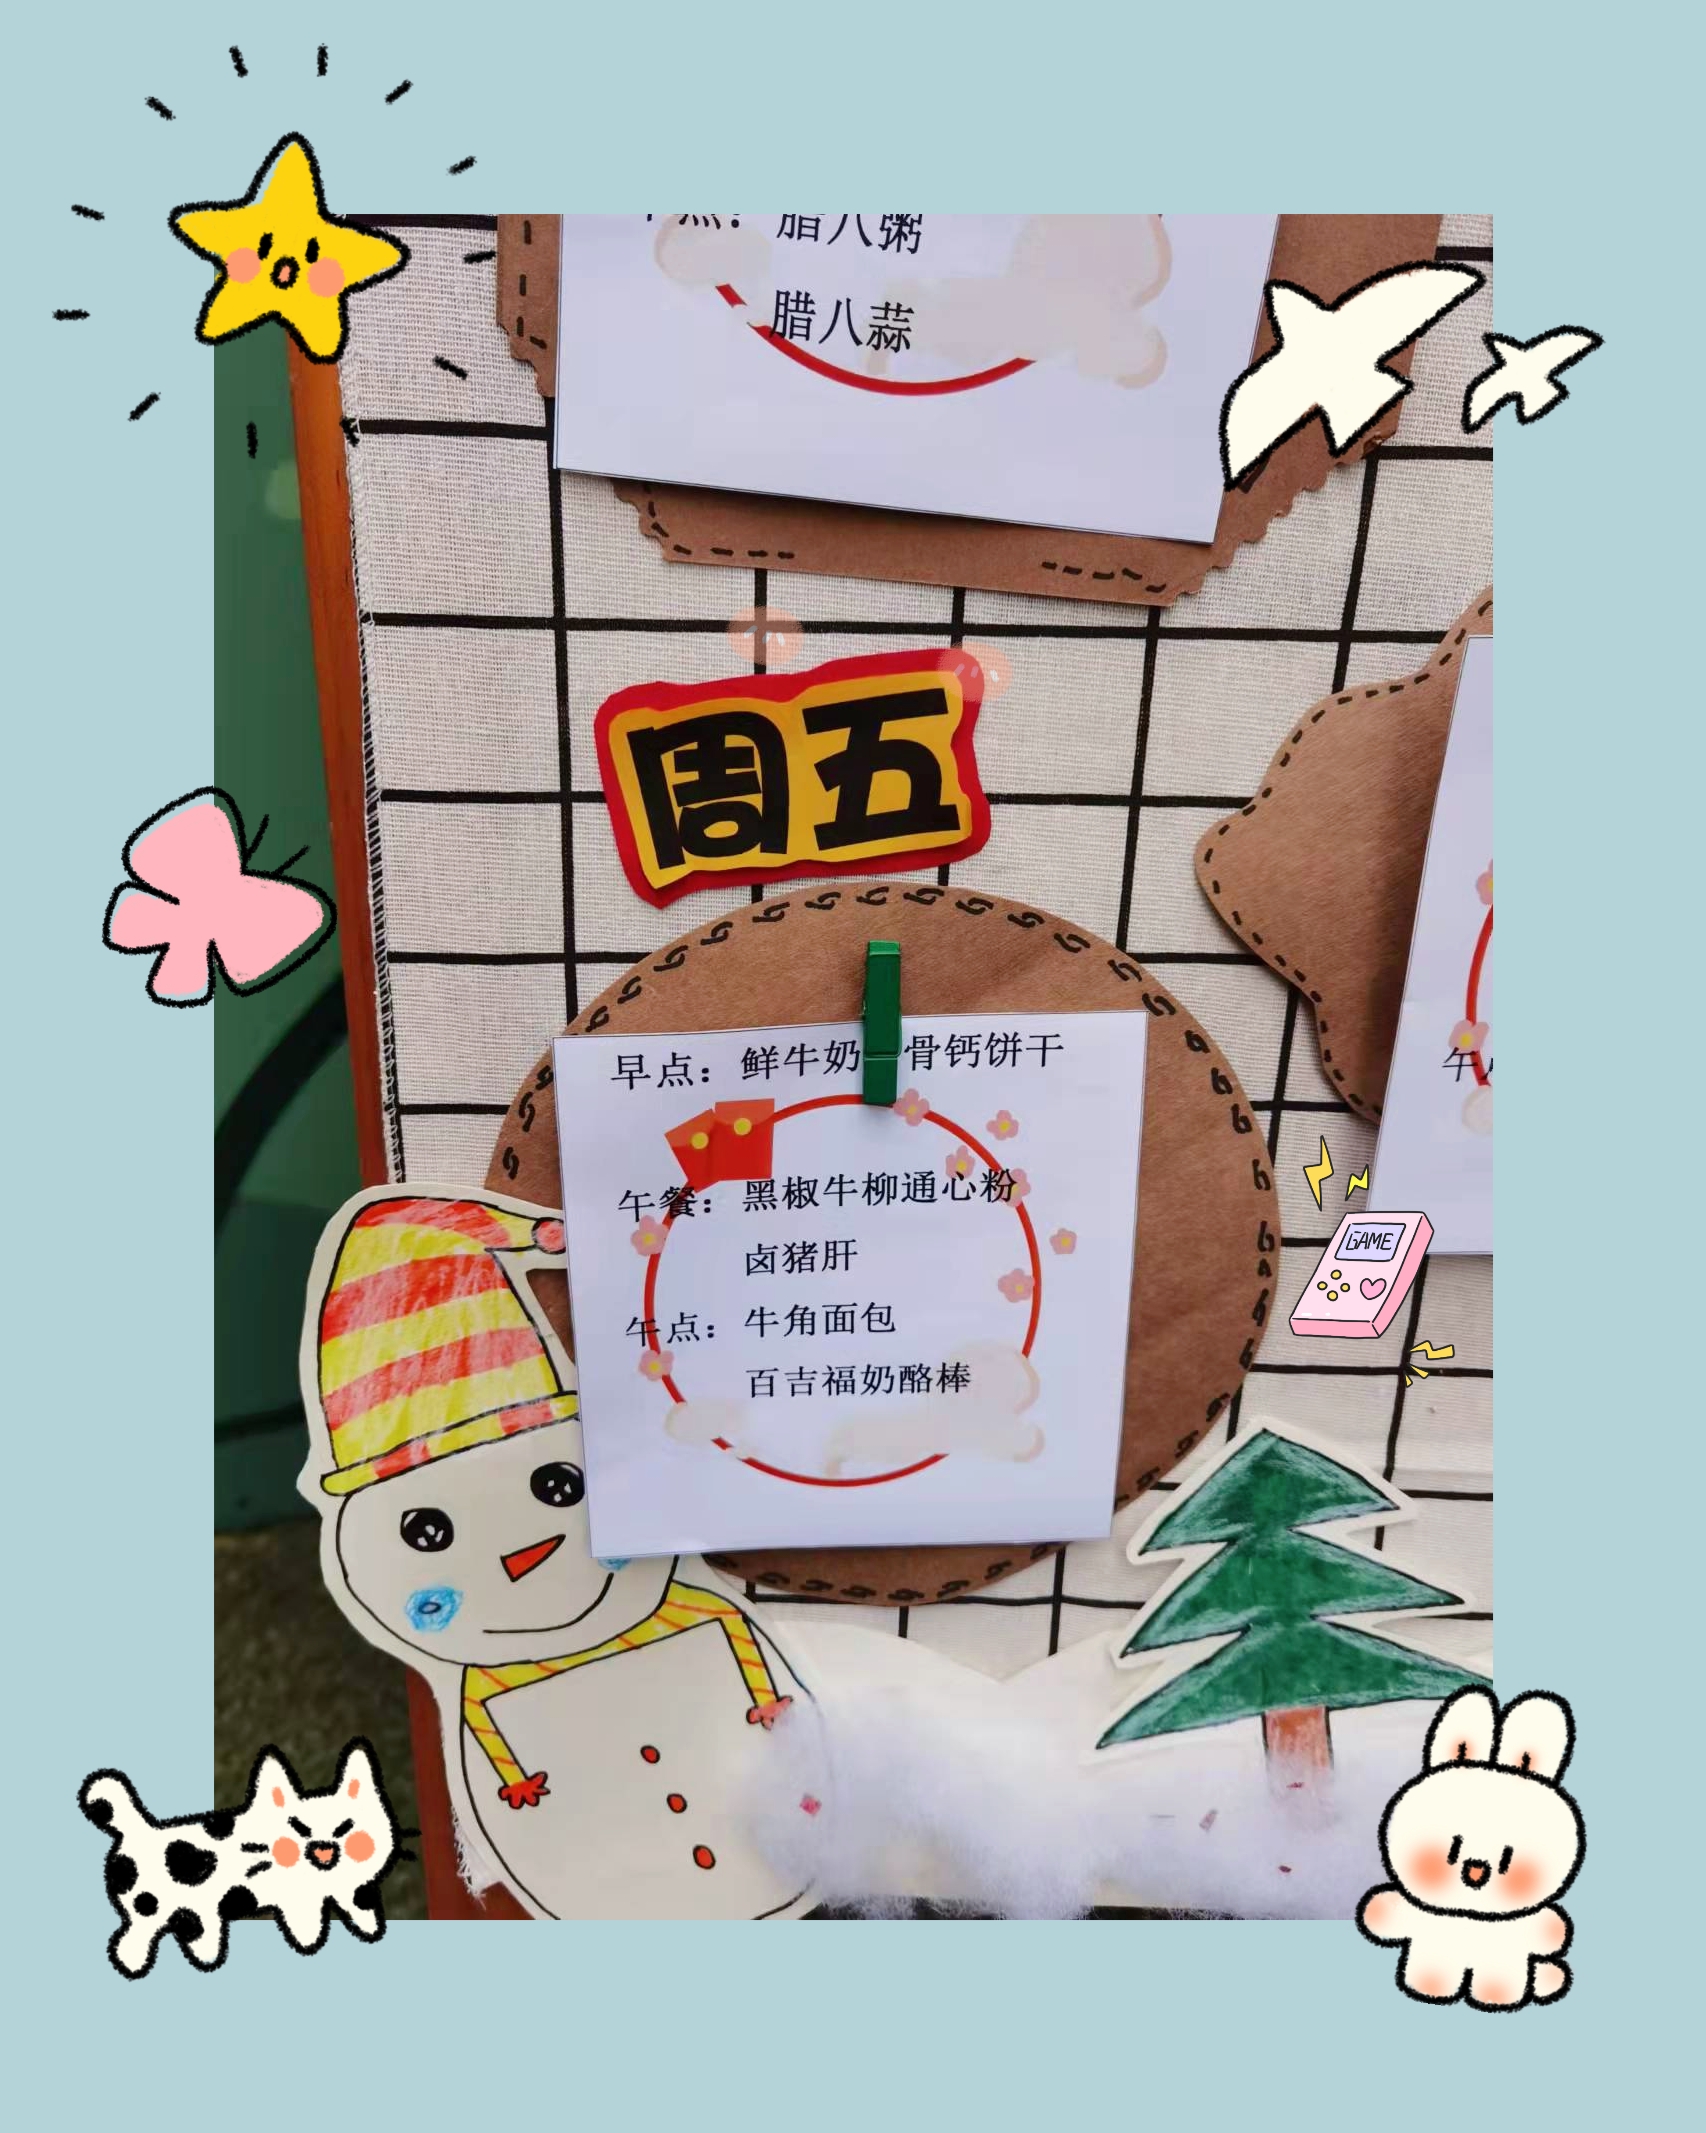 点：腊八粥
腊八蒜
周五
早点：鲜牛奶 骨钙饼干
午餐：黑椒牛柳通心粉
卤猪肝
午点：牛角面包
百吉福奶酪棒
午
GAME